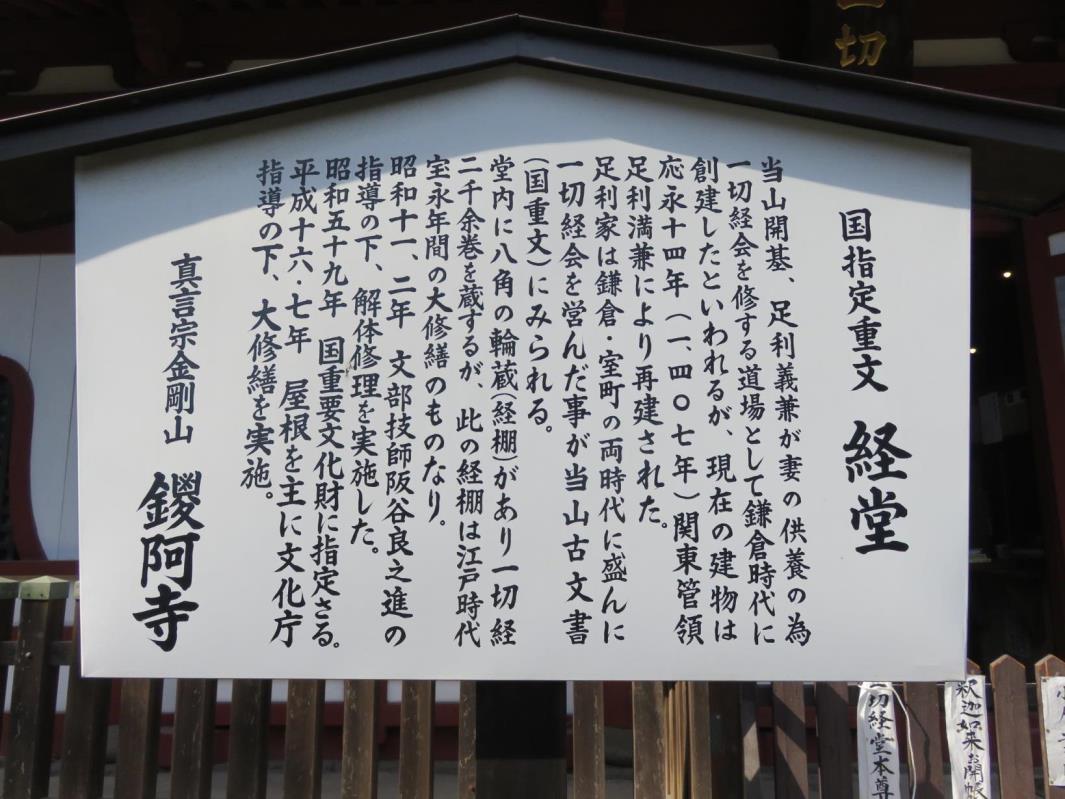 国指定重文 経堂
当山開基、足利義兼が妻の供養の為
一切経会を修する道場として鎌倉時代に
創建したといわれるが、現在の建物は
応永十四年(一、四〇七年)関東管領
足利満兼により再建された。
足利家は鎌倉・室町の両時代に盛んに
一切経会を営んだ事が当山古文書
(国重文)にみられる。
堂内に八角の輪蔵(経棚)があり一切経
二千余巻を蔵するが、此の経棚は江戸時代
宝永年間の大修繕のものなり。
昭和十一、二年 文部技師阪谷良之進の
指導の下、解体修理を実施した。
昭和五十九年 国重要文化財に指定さる。
平成十六・七年 屋根を主に文化庁
指導の下、大修繕を実施。
真言宗金剛山 鑁阿寺
切
釈迦如来お開帳
切経堂本尊